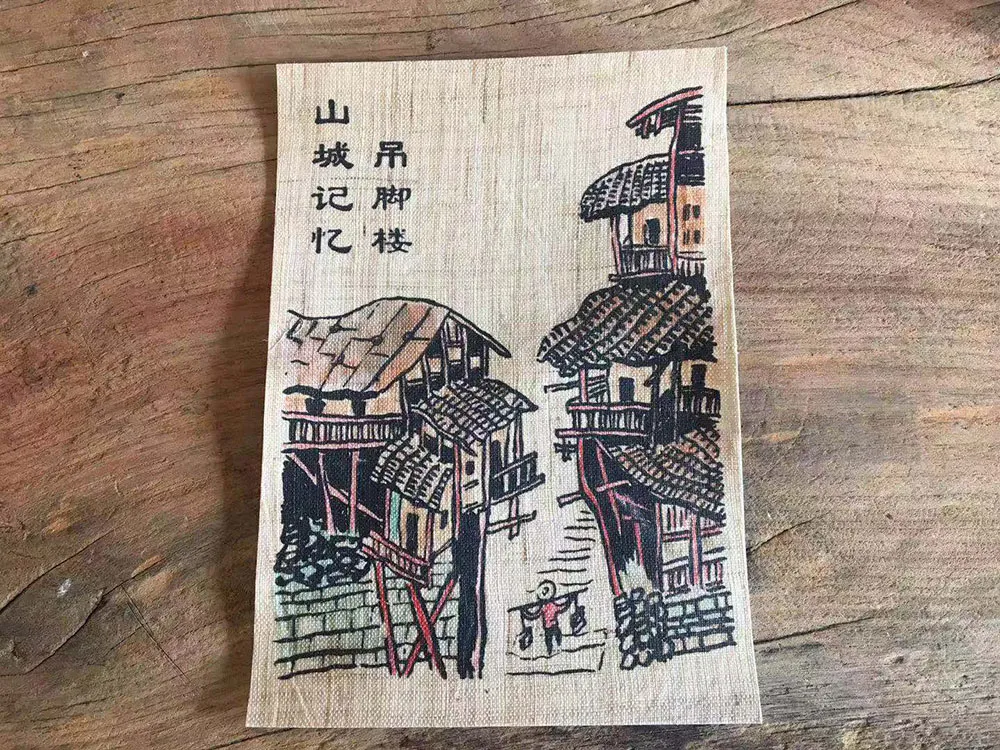 山城记忆
吊脚楼